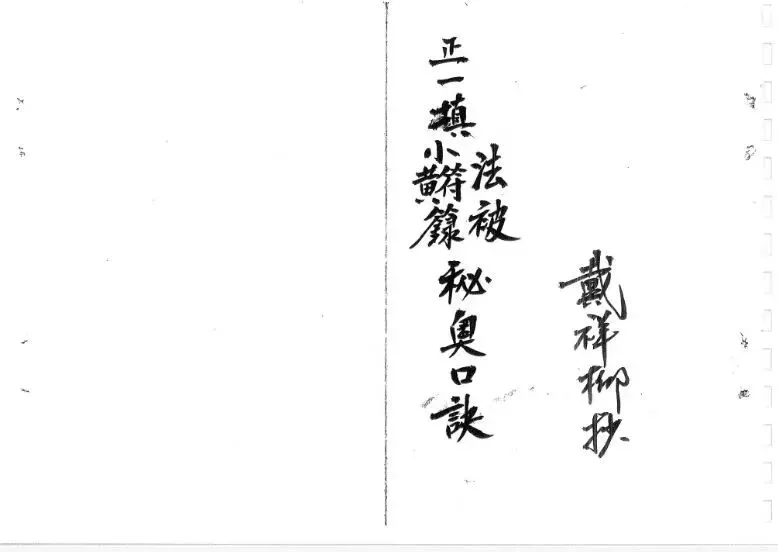 戴祥柳抄
法被
正一填小黄符籙秘奥口訣